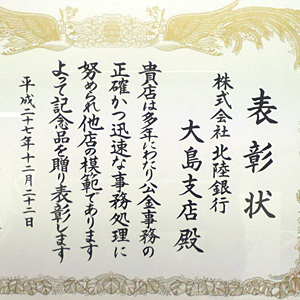 表彰状
株式会社 北陸銀行
大島支店 殿
貴店は多年にわたり公金事務の
正確かつ迅速な事務処理に
努められ他店の模範であります
よって記念品を贈り表彰します
平成二十七年十二月二十二日